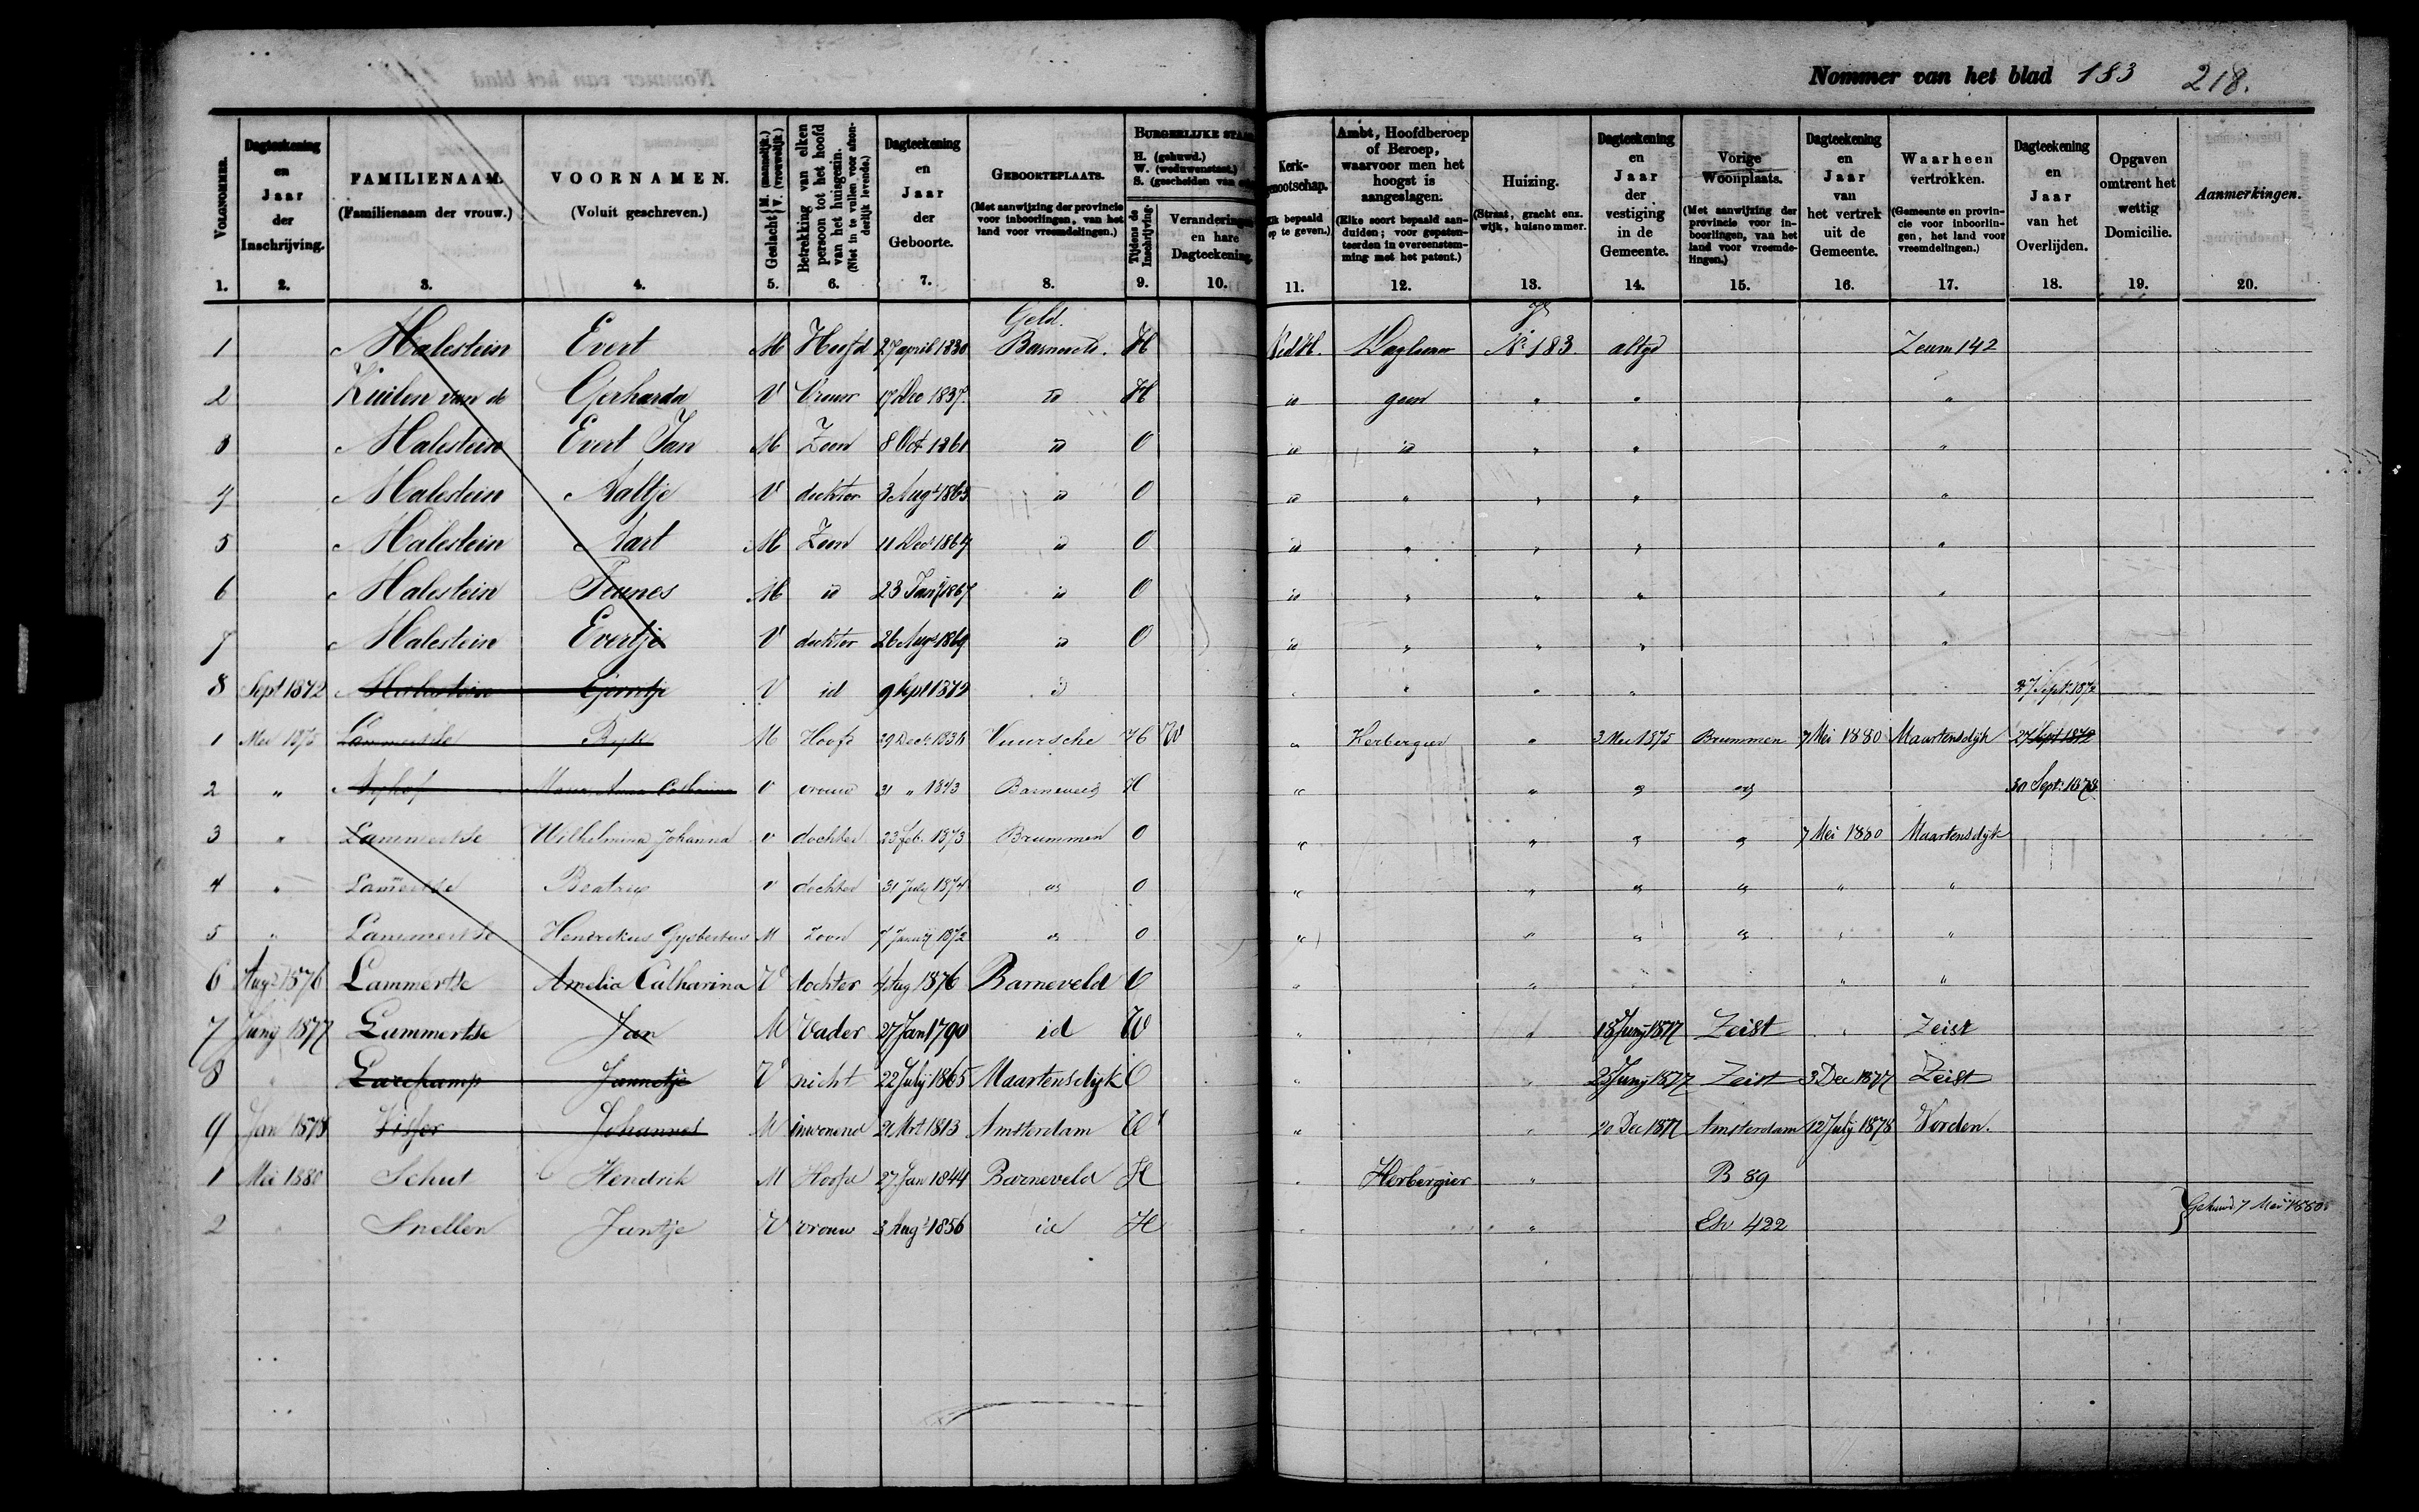 Nommer van het blad 183 218.
VOLGNOMMER. 1.
Dagteekening en Jaar der Inschrijving. 2.
FAMILIENAAM. (Familienaam der vrouw.) 3.
VOORNAMEN. (Voluit geschreven.) 4.
Geslacht M. (mannelijk.) V. (vrouwelijk.) 5.
Betrekking van elken persoon tot het hoofd van het huisgezin. (Niet in te vullen voor afzonderlijk levende.) 6.
Dagteekening en Jaar der Geboorte. 7.
GEBOORTEPLAATS. (Met aanwijzing der provincie voor inboorlingen, van het land voor vreemdelingen.) 8.
BURGERLIJKE STAA
H. (gehuwd.)
W. (weduwenstaat.)
S. (gescheiden van
Tijdens de Inschrijving. 9.
Veranderingen en hare Dagteekening. 10.
Kerk-
nootschap. 11.
Ambt, Hoofdberoep of Beroep, waarvoor men het hoogst is aangeslagen. (Elke soort bepaald aanduiden; voor gepatenteerden in overeenstemming met het patent.) 12.
Huizing. (Straat, gracht enz. wijk, huisnommer.) 13.
Dagteekening en Jaar der vestiging in de Gemeente. 14.
Vorige Woonplaats. (Met aanwijzing der provincie voor inboorlingen, van het land voor vreemdelingen.) 15.
Dagteekening en Jaar van het vertrek uit de Gemeente. 16.
Waarheen vertrokken. (Gemeente en provincie voor inboorlingen, het land voor vreemdelingen.) 17.
Dagteekening en Jaar van het Overlijden. 18.
Opgaven omtrent het wettig Domicilie. 19.
Aanmerkingen. 20.
Geld.
1 Malestein Evert M Hoofd 27 april 1830 Barneveld. H Ned H. Dagloner No 183 altyd Zeum 142
2 Kuilen van de Gerharda V Vrouw 17 Dec 1837 id H id geen " " "
3 Malestein Evert Jan M Zoon 8 Oct 1861 id O id id " " "
4 Malestein Aaltje V dochter 3 Augt 1863 id O id " " " "
5 Malestein Aart M Zoon 11 Dec 1864 id O id " " " "
6 Malestein Teunes M id 23 Jany 1867 id O id " " " "
7 Malestein Evertje V dochter 26 Augt 1869 id O id " " " "
8 Sept 1872 Malestein Gerritje V id 9 Sept 1872 id " " " 27 Sept. 1872
1 Mei 1875 Lammertse Ryk M Hoofd 29 Dect. 1838 Vuursche H W " Herbergier " 3 Mei 1875 Brummen 7 Mei 1880 Maartensdyk 27 Sept 1872
2 " Nyhof Maria Anna Catharina V vrouw 31 " 1843 Barneveld H " " " " 30 Sept. 1878
3 " Lammertse Wilhelmina Johanna V dochter 23 Feb. 1873 Brummen O " " " " 7 Mei 1880 Maartensdyk
4 " Lammertse Beatrix V dochter 31 July 1874 " O " " " " " "
5 " Lammertse Hendrikus Gysbertus M Zoon 7 January 1872 " O " " " " " "
6 Augt 1876 Lammertse Amelia Catharina V dochter 4 Aug 1876 Barneveld O " " " "
7 Juny 1877 Lammertse Jan M Vader 27 Jan 1790 id W " " 18 Juny 1877 Zeist " Zeist
8 " Larekamp Jannetje V nicht 22 July 1865 Maartensdyk O " " 25 Juny 1877 Zeist 3 Dec 1877 Zeist
9 Jan 1878 Visser Johannes M inwonend 21 Mrt 1813 Amsterdam W " " 20 Dec 1877 Amsterdam 12 July 1878 Vorden.
1 Mei 1880 Schut Hendrik M Hoofd 27 Jan 1844 Barneveld H " Herbergier " B 89
2 " Snellen Jantje V vrouw 3 Augt 1856 id H " " Eh 422 } Gehuwd 7 Mei 1880